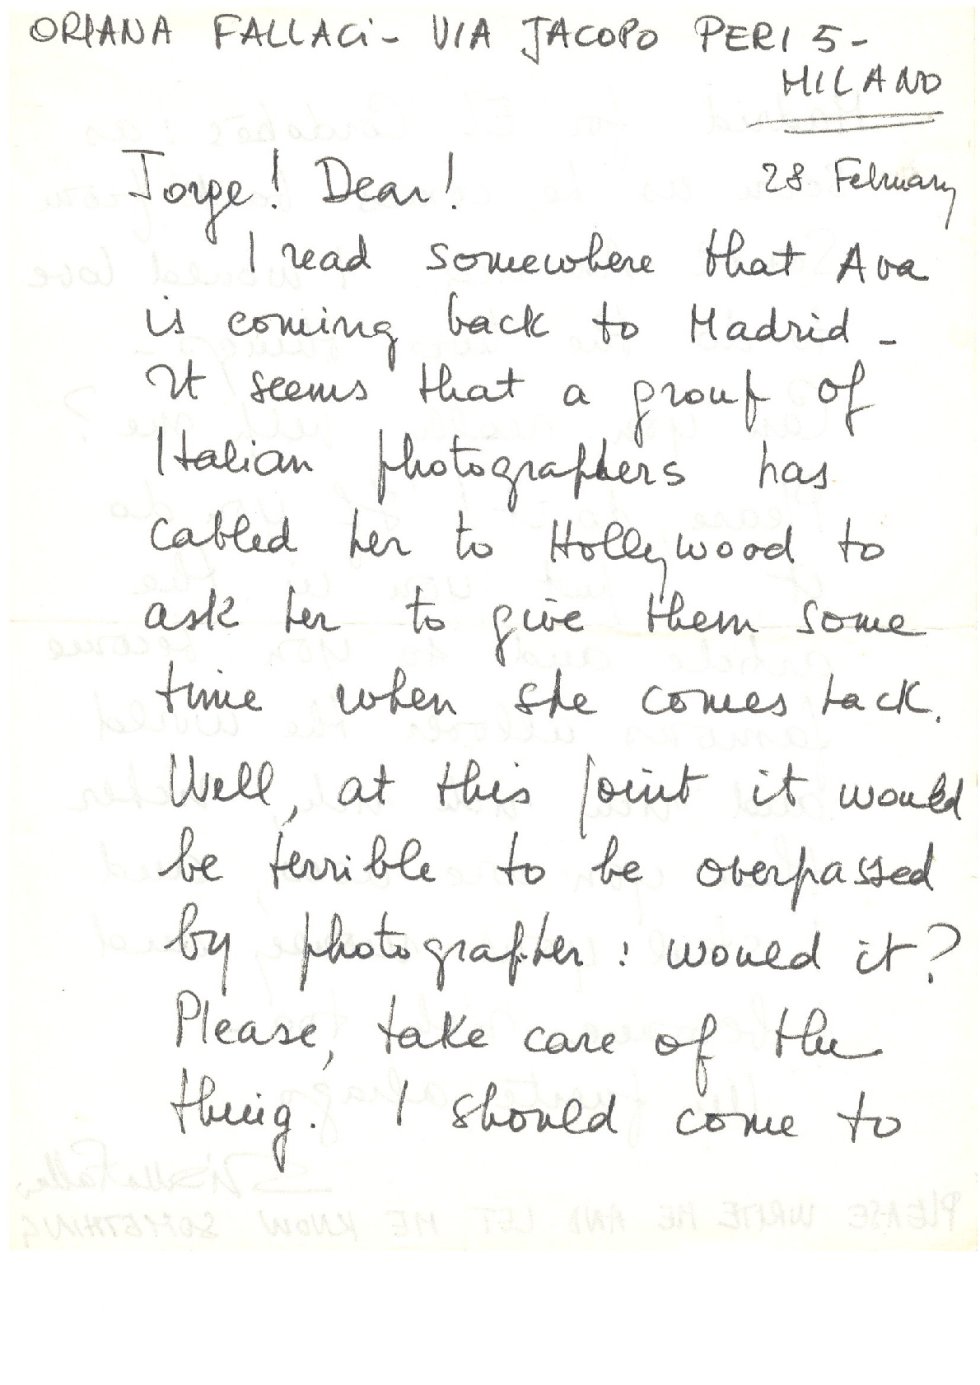 ORIANA FALLACI - VIA JACOPO PERI 5 -
MILANO
28 February
Jorge! Dear!
I read somewhere that Ava
is coming back to Madrid -
It seems that a group of
Italian photographers has
cabled her to Hollywood to
ask her to give them some
time when she comes back.
Well, at this point it would
be terrible to be overpassed
by photographer: would it?
Please, take care of the
thing. I should come to
PLEASE WRITE ME AND LET ME KNOW SOMETHING